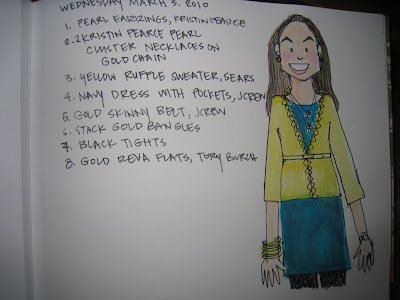 WEDNESDAY MARCH 3. 2010
1. PEARL EARRINGS, KRISTIN PEARCE
2. 2 KRISTIN PEARCE PEARL
CLUSTER NECKLACES ON
GOLD CHAIN
3. YELLOW RUFFLE SWEATER, SEARS
4. NAVY DRESS WITH POCKETS, JCREW
5. GOLD SKINNY BELT, JCREW
6. STACK GOLD BANGLES
7. BLACK TIGHTS
8. GOLD REVA FLATS, TORY BURCH